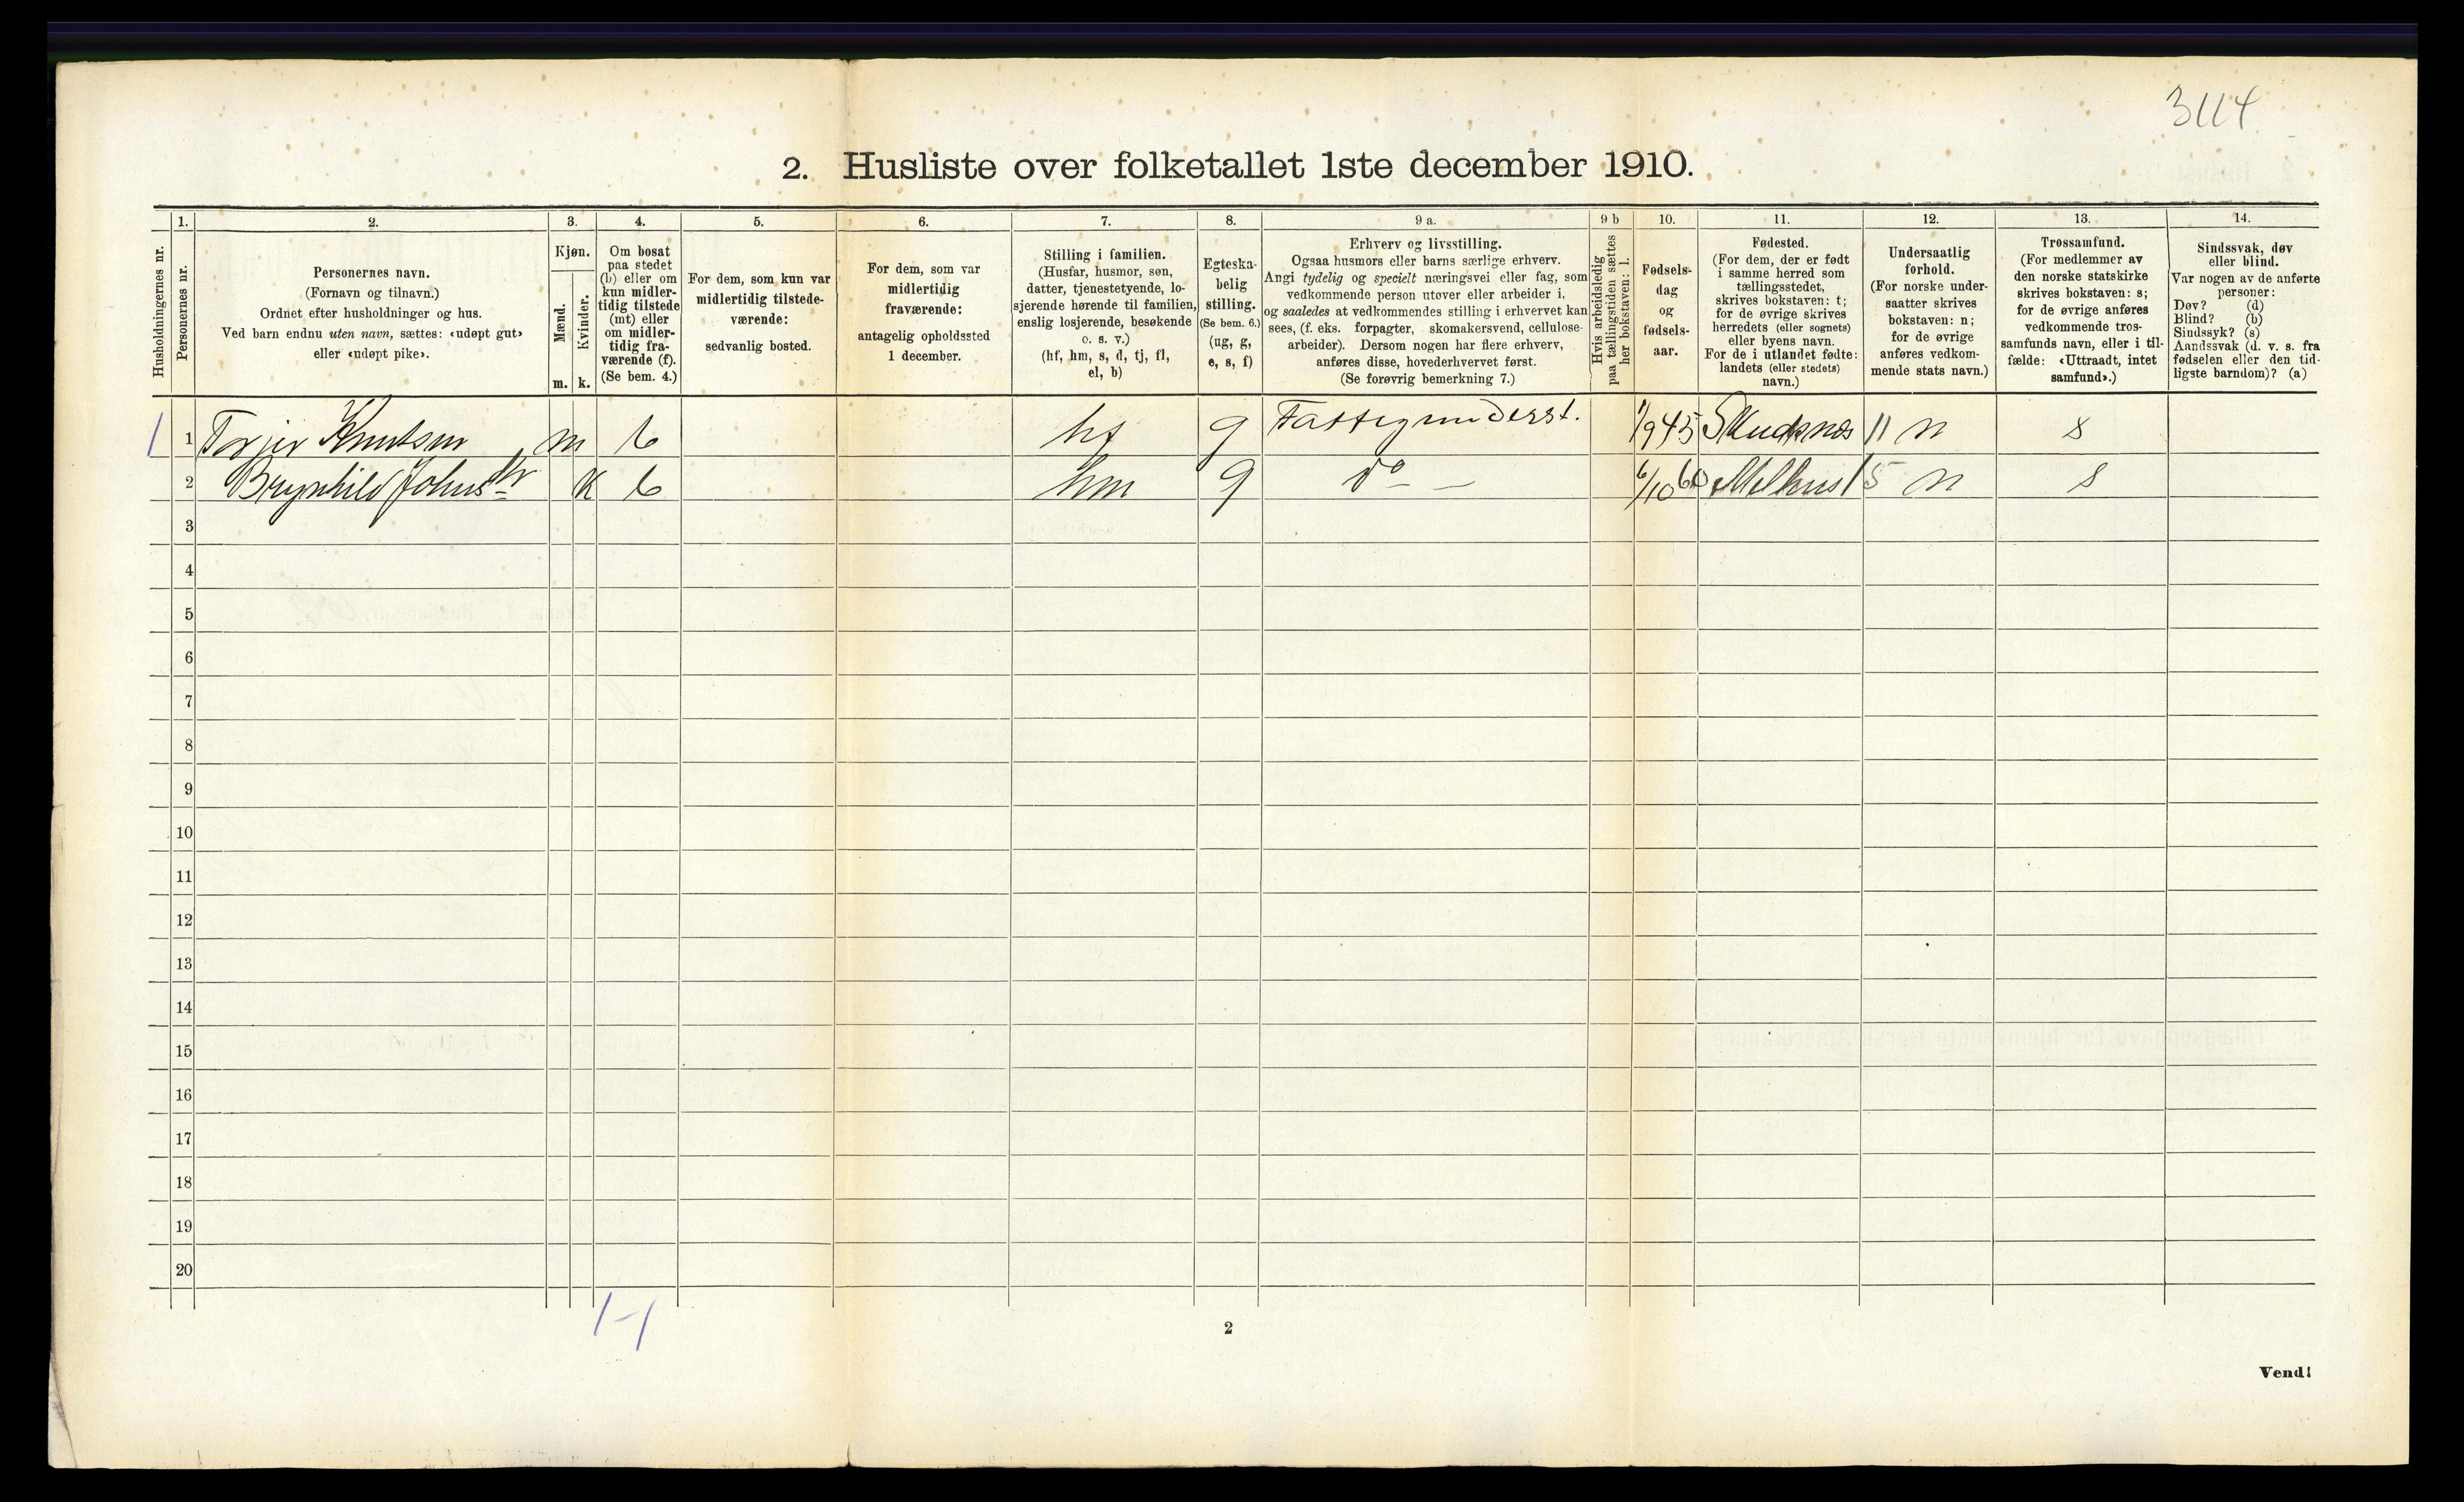 3114
2. Husliste over folketallet 1ste december 1910.
Husholdningernes nr.
1.
Personernes nr.
2.
Personernes navn.
(Fornavn og tilnavn.)
Ordnet efter husholdninger og hus.
Ved barn endnu uten navn, sættes: «udøpt gut»
eller «udøpt pike».
3.
Kjøn.
Mænd.
Kvinder.
m. k.
4.
Om bosat
paa stedet
(b) eller om
kun midler-
tidig tilstede
(mt) eller
om midler-
tidig fra-
værende (f).
(Se bem. 4.)
5.
For dem, som kun var
midlertidig tilstede-
værende:
sedvanlig bosted.
6.
For dem, som var
midlertidig
fraværende:
antagelig opholdssted
1 december.
7.
Stilling i familien.
(Husfar, husmor, søn,
datter, tjenestetyende, lo-
sjerende hørende til familien,
enslig losjerende, besøkende
o. s. v.)
(hf, hm, s, d, tj, fl,
el, b)
8.
Egteska-
belig
stilling.
(Se bem. 6.)
(ug, g,
e, s, f)
9 a.
Erhverv og livsstilling.
Ogsaa husmors eller barns særlige erhverv.
Angi tydelig og specielt næringsvei eller fag, som
vedkommende person utøver eller arbeider i,
og saaledes at vedkommendes stilling i erhvervet kan
sees, (f. eks. forpagter, skomakersvend, cellulose-
arbeider). Dersom nogen har flere erhverv,
anføres disse, hovederhvervet først.
(Se forøvrig bemerkning 7.)
9 b
Hvis arbeidsledig
paa tællingstiden sættes
her bokstaven: l.
10.
Fødsels-
dag
og
fødsels-
aar.
11.
Fødested.
(For dem, der er født
i samme herred som
tællingsstedet,
skrives bokstaven: t;
for de øvrige skrives
herredets (eller sognets)
eller byens navn.
For de i utlandet fødte:
landets (eller stedets)
navn.)
12.
Undersaatlig
forhold.
(For norske under-
saatter skrives
bokstaven: n;
for de øvrige
anføres vedkom-
mende stats navn.)
13.
Trossamfund.
(For medlemmer av
den norske statskirke
skrives bokstaven: s;
for de øvrige anføres
vedkommende tros-
samfunds navn, eller i til-
fælde: «Uttraadt, intet
samfund».)
14.
Sindssvak, døv
eller blind.
Var nogen av de anførte
personer:
Døv? (d)
Blind? (b)
Sindssyk? (s)
Aandssvak (d. v. s. fra
fødselen eller den tid-
ligste barndom)? (a)
1 1 Torjer Knutsen m b hf g Fattigunderst. 1/9 45 Skudsnæs 11 n s
2 Brynhild Johnsdtr k b hm g do — 6/10 60 Melhus 15 n s
3
4
5
6
7
8
9
10
11
12
13
14
15
16
17
18
19
20
1-1
2
Vend!